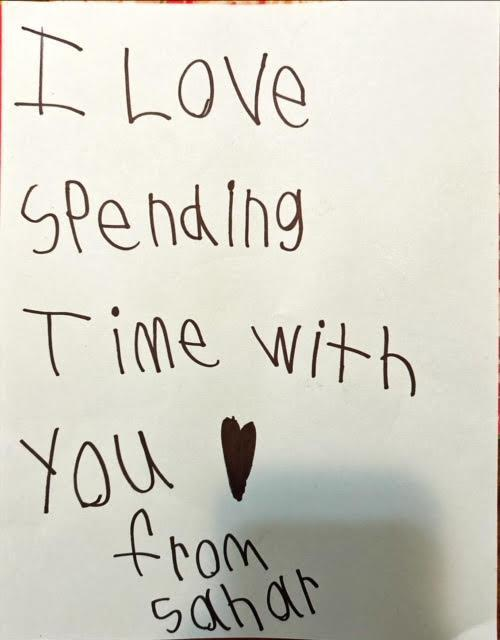 I Love
spending
Time with
you ♥
from
sahar